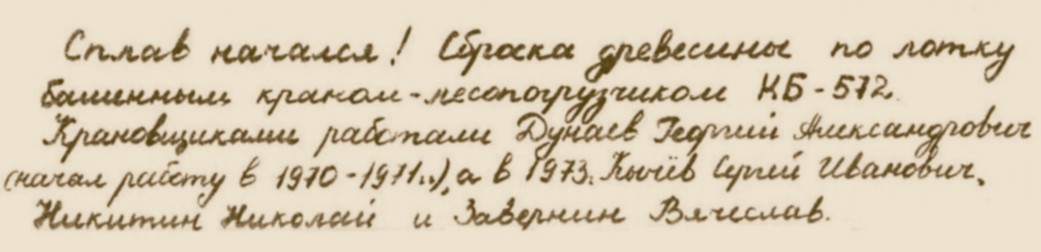 Сплав начался! Сброска древесины по лотку
башенным краном-лесопогрузчиком КБ-572.
Крановщиками работали Дунаев Георгий Александрович
(начал работу в 1970-1971г.), а в 1973. Кычёв Сергей Иванович,
Никитин Николай и Завернин Вячеслав.